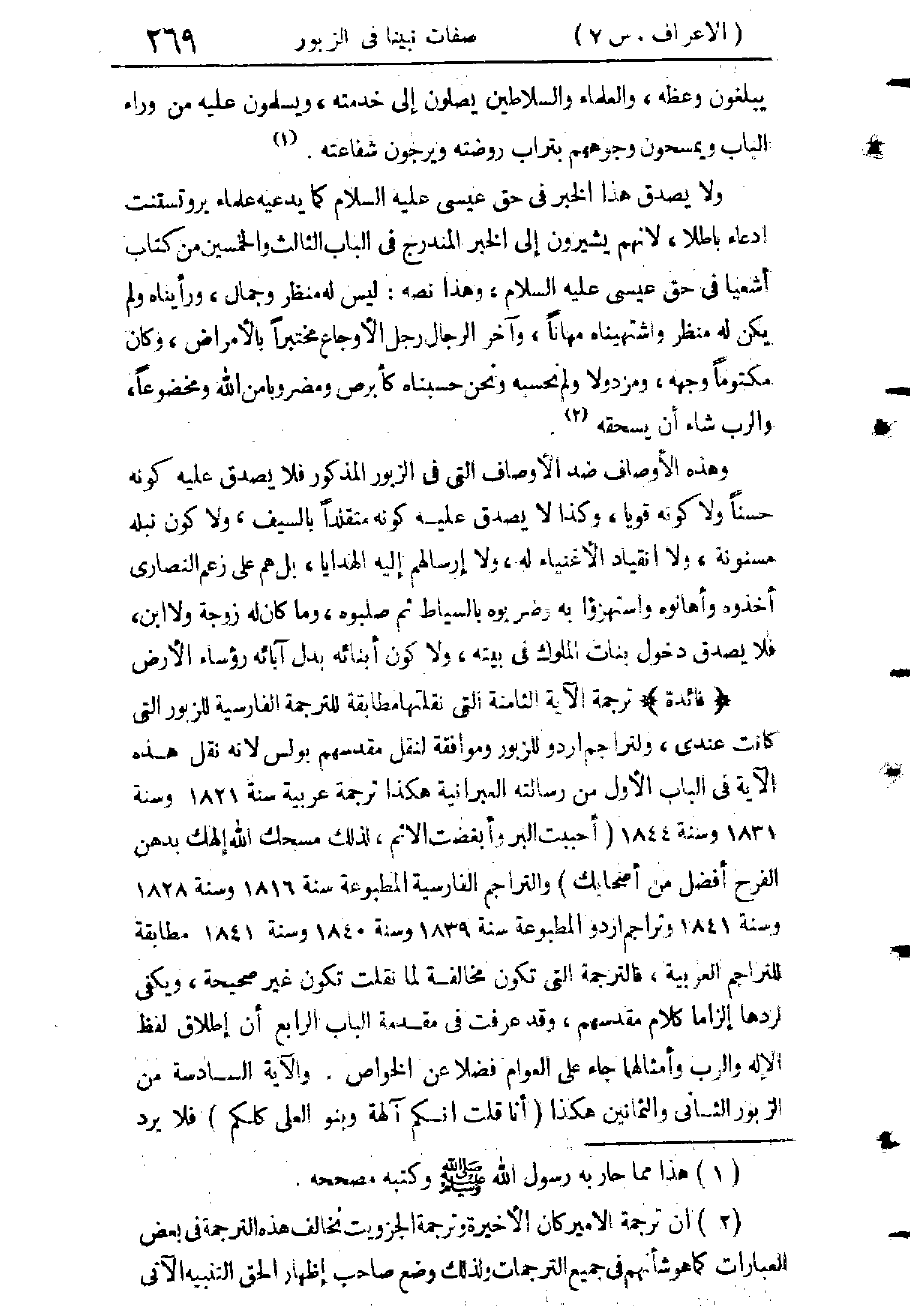 ( الاعراف . س ٧ ) صفات نبينا فى الزبور ٢٦٩
يبلغون وعظه ، والعلماء والسلاطين يصلون إلى خدمته ، ويسلمون عليه من وراء
الباب ويمسحون وجوههم بتراب روضته ويرجون شفاعته . (١)
ولا يصدق هذا الخبر فى حق عيسى عليه السلام كما يدعيه علماء بروتستنت
ادعاء باطلا ، لانهم يشيرون إلى الخبر المندرج فى الباب الثالث والخمسين من كتاب
أشعيا فى حق عيسى عليه السلام ، وهذا نصه : ليس له منظر وجمال ، ورأيناه ولم
يكن له منظر واشتهيناه مهاناً ، وآخر الرجال رجل الأوجاع مختبراً بالأمراض ، وكان
مكتوماً وجهه ، ومزدولا ولم نحسبه ونحن حسبناه كأبرص ومضروبا من الله ومخضوعاً ،
والرب شاء أن يسحقه (٢) .
وهذه الأوصاف ضد الأوصاف التى فى الزبور المذكور فلا يصدق عليه كونه
حسناً ولا كونه قويا ، وكذا لا يصدق عليه كونه متقلداً بالسيف ، ولا كون نبله
مسنونة ، ولا انقياد الأغنياء له ، ولا إرسالهم إليه الهدايا ، بل هم على زعم النصارى
أخذوه وأهانوه واستهزؤا به وضربوه بالسياط ثم صلبوه ، وما كان له زوجة ولا ابن ،
فلا يصدق دخول بنات الملوك فى بيته ، ولا كون أبنائه بدل آبائه رؤساء الأرض
﴿ فائدة ﴾ ترجمة الآية الثامنة التى نقلتها مطابقة للترجمة الفارسية للزبور التى
كانت عندى ، ولتراجم اردو للزبور وموافقة لنقل مقدسهم بولس لانه نقل هذه
الآية فى الباب الأول من رسالته العبرانية هكذا ترجمة عربية سنة ١٨٢١ وسنة
١٨٣١ وسنة ١٨٤٤ ( أحببت البر وأبغضت الاثم ، لذلك مسحك الله إلهك بدهن
الفرح أفضل من أصحابك ) والتراجم الفارسية المطبوعة سنة ١٨١٦ وسنة ١٨٢٨
وسنة ١٨٤١ وتراجم اردو المطبوعة سنة ١٨٣٩ وسنة ١٨٤٠ وسنة ١٨٤١ مطابقة
للتراجم العربية ، فالترجمة التى تكون مخالفة لما نقلت تكون غير صحيحة ، ويكفى
لردها إلزاما كلام مقدسهم ، وقد عرفت فى مقدمة الباب الرابع أن إطلاق لفظ
الإله والرب وأمثالهما جاء على العوام فضلا عن الخواص . والآية السادسة من
الزبور الثانى والثمانين هكذا ( أنا قلت انكم آلهة وبنو العلى كلكم ) فلا يرد
( ١ ) هذا مما حار به رسول الله ﷺ وكتبه مصححه .
( ٢ ) أن ترجمة الاميركان الأخيرة وترجمة الجزويت تخالف هذه الترجمة فى بعض
العبارات كما هو شأنهم فى جميع الترجمات ولذلك وضع صاحب إظهار الحق التنبيه الآتى